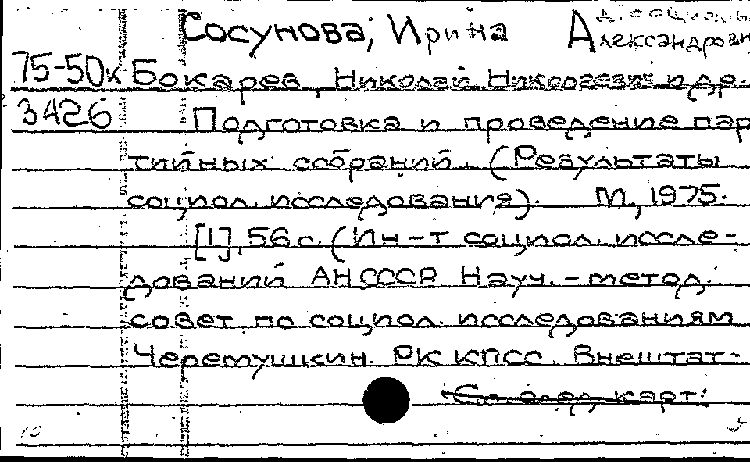 Сосунова, Ирина Александровн
75-50к Бокарев, Николай Николаевич и др.
3426 Подготовка и проведение пар
тийных собраний. (Результаты
социол. исследования). М., 1975.
[1], 56 с. (Ин-т социол. иссле-
дований АН СССР Науч.-метод.
совет по социол. исследованиям
Черемушкин. РК КПСС. Внештат-
См. след. карт.